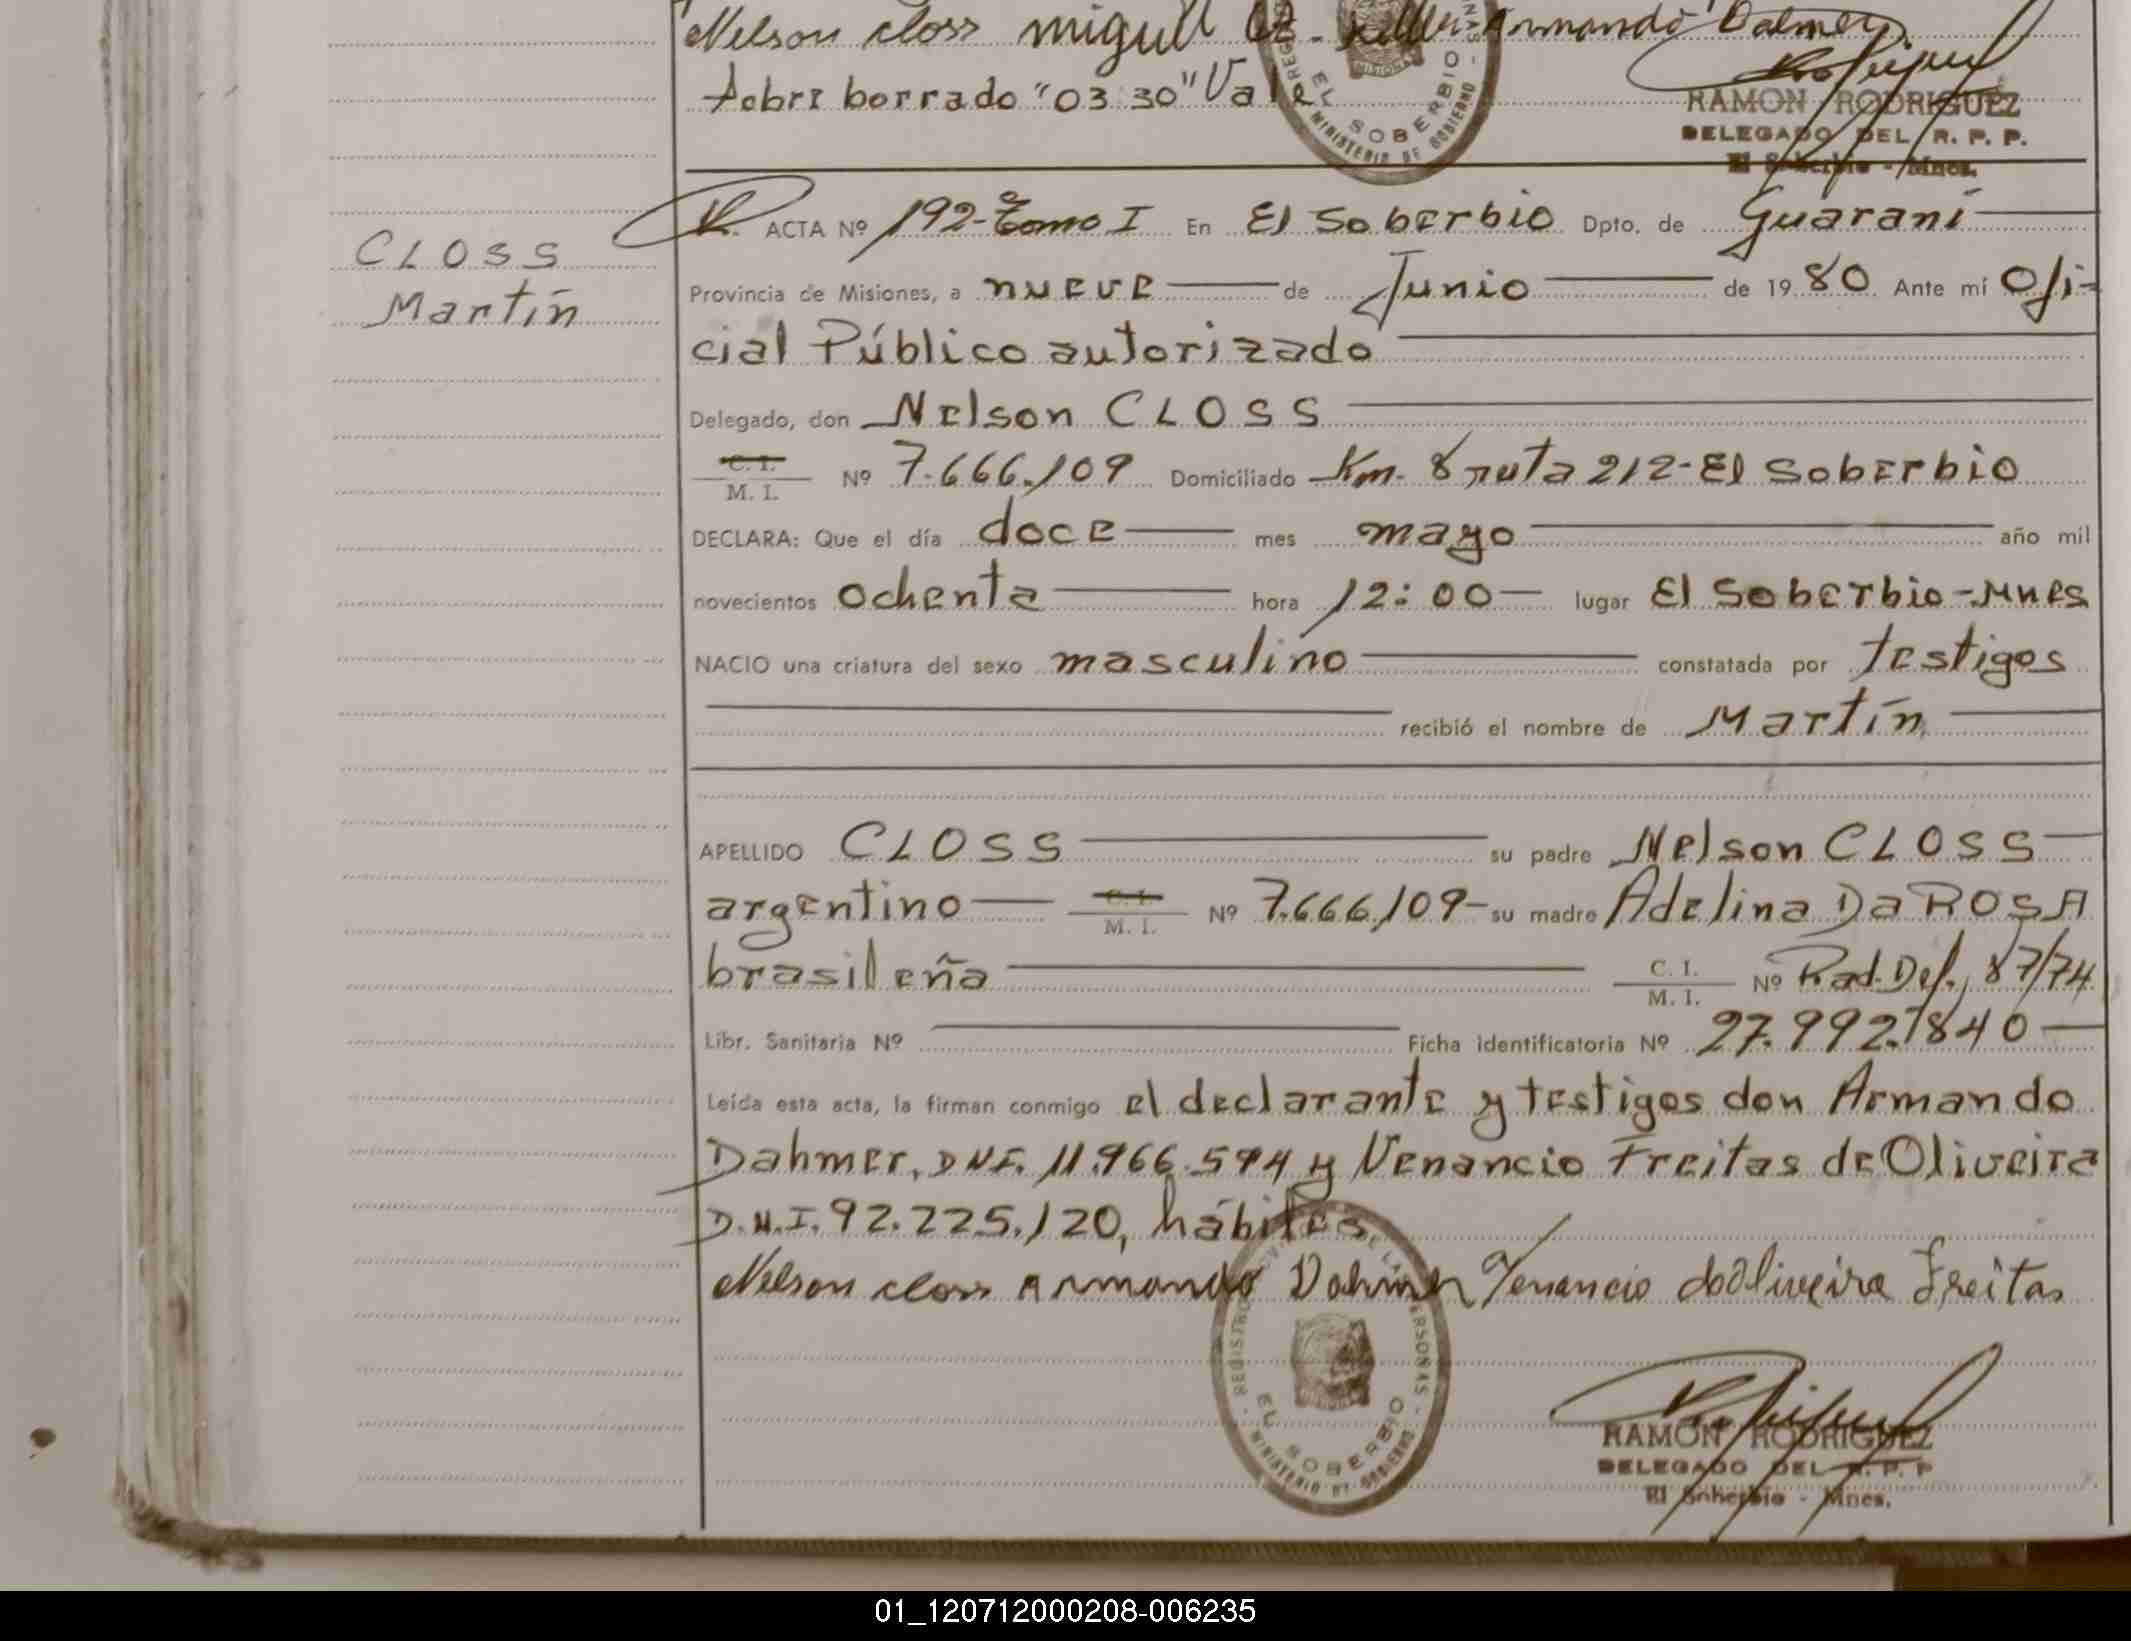 Nelson closs miguel
Armando Dalmer
sobre borrado "03 30" Vale
EL SOBERBIO
MINISTERIO DE GOBIERNO
RAMON RODRIGUEZ
DELEGADO DEL R. P. P.
El Soberbio - Mnes.
CLOSS
Martín
ACTA Nº 192-Tomo I En El Soberbio Dpto. de Guaraní
Provincia de Misiones, a nueve de Junio de 19 80 Ante mí Ofi-
cial Público autorizado
Delegado, don Nelson CLOSS
C. I. / M. I. Nº 7.666.109 Domiciliado Km. 8 ruta 212-El Soberbio
DECLARA: Que el día doce mes mayo año mil
novecientos ochenta hora 12:00 lugar El Soberbio-Mnes
NACIO una criatura del sexo masculino constatada por testigos
recibió el nombre de Martín
APELLIDO CLOSS su padre Nelson CLOSS
argentino C. I. / M. I. Nº 7.666.109- su madre Adelina Da ROSA
brasileña C. I. / M. I. Nº Rad. Def., 87/74
Libr. Sanitaria Nº Ficha identificatoria Nº 27.992.840
Leída esta acta, la firman conmigo el declarante y testigos don Armando
Dahmer, DNI. 11.966.594 y Venancio Freitas de Oliveira
D.N.I. 92.225.120, hábiles
Nelson closs Armando Dahmer Venancio dOliveira Freitas
EL SOBERBIO
MINISTERIO DE GOBIERNO
RAMON RODRIGUEZ
DELEGADO DEL R. P. P
El Soberbio - Mnes.
01_120712000208-006235